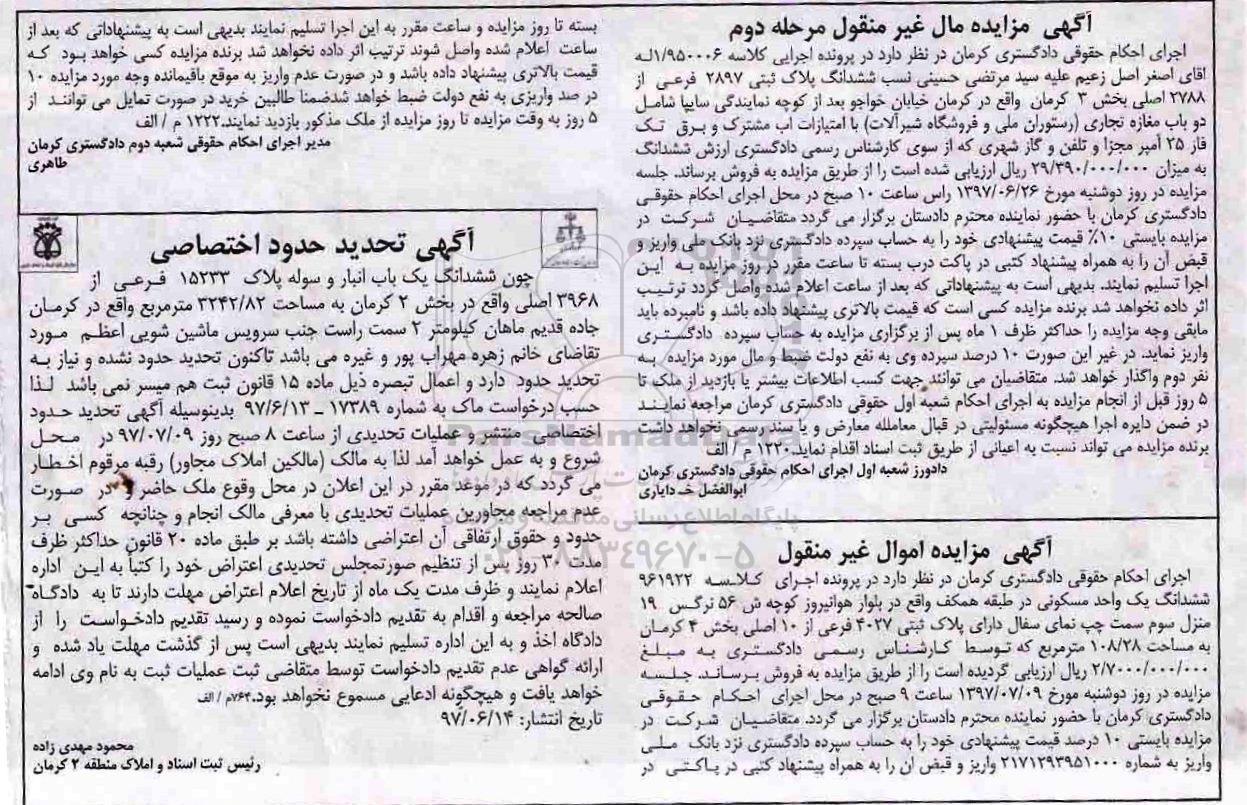 آگهی مزایده مال غیر منقول مرحله دوم
اجرای احکام حقوقی دادگستری کرمان در نظر دارد در پرونده اجرایی کلاسه ۱/۹۵۰۰۰۶له
اقای اصغر اصل زعیم علیه سید مرتضی حسینی نسب ششدانگ پلاک ثبتی ۲۸۹۷ فرعی از
۲۷۸۸ اصلی بخش ۳ کرمان واقع در کرمان خیابان خواجو بعد از کوچه نمایندگی سایپا شامل
دو باب مغازه تجاری (رستوران ملی و فروشگاه شیرآلات) با امتیازات اب مشترک و برق تک
فاز ۲۵ آمپر مجزا و تلفن و گاز شهری که از سوی کارشناس رسمی دادگستری ارزش ششدانگ
به میزان ۲۹/۳۹۰/۰۰۰/۰۰۰ ریال ارزیابی شده است را از طریق مزایده به فروش برساند. جلسه
مزایده در روز دوشنبه مورخ ۱۳۹۷/۰۶/۲۶ راس ساعت ۱۰ صبح در محل اجرای احکام حقوقی
دادگستری کرمان با حضور نماینده محترم دادستان برگزار می گردد متقاضیان شرکت در
مزایده بایستی ۱۰٪ قیمت پیشنهادی خود را به حساب سپرده دادگستری نزد بانک ملی واریز و
قبض آن را به همراه پیشنهاد کتبی در پاکت درب بسته تا ساعت مقرر در روز مزایده به این
اجرا تسلیم نمایند. بدیهی است به پیشنهاداتی که بعد از ساعت اعلام شده واصل گردد ترتیب
اثر داده نخواهد شد برنده مزایده کسی است که قیمت بالاتری پیشنهاد داده باشد و نامبرده باید
مابقی وجه مزایده را حداکثر ظرف ۱ ماه پس از برگزاری مزایده به حساب سپرده دادگستری
واریز نماید. در غیر این صورت ۱۰ درصد سپرده وی به نفع دولت ضبط و مال مورد مزایده به
نفر دوم واگذار خواهد شد. متقاضیان می توانند جهت کسب اطلاعات بیشتر یا بازدید از ملک تا
۵ روز قبل از انجام مزایده به اجرای احکام شعبه اول حقوقی دادگستری کرمان مراجعه نمایند
در ضمن دایره اجرا هیچگونه مسئولیتی در قبال معامله معارض و یا سند رسمی نخواهد داشت
برنده مزایده می تواند نسبت به اعیانی از طریق ثبت اسناد اقدام نماید.۱۲۲۰ م / الف
دادورز شعبه اول اجرای احکام حقوقی دادگستری کرمان
ابوالفضل خدایاری
آگهی مزایده اموال غیر منقول
اجرای احکام حقوقی دادگستری کرمان در نظر دارد در پرونده اجرای کلاسه ۹۶۱۹۲۲
ششدانگ یک واحد مسکونی در طبقه همکف واقع در بلوار هوانیروز کوچه ش ۵۶ نرگس ۱۹
منزل سوم سمت چپ نمای سفال دارای پلاک ثبتی ۴۰۲۷ فرعی از ۱۰ اصلی بخش ۴ کرمان
به مساحت ۱۰۸/۲۸ مترمربع که توسط کارشناس رسمی دادگستری به مبلغ
۲/۷۰۰۰/۰۰۰/۰۰۰ ریال ارزیابی گردیده است را از طریق مزایده به فروش برساند. جلسه
مزایده در روز دوشنبه مورخ ۱۳۹۷/۰۷/۰۹ ساعت ۹ صبح در محل اجرای احکام حقوقی
دادگستری کرمان با حضور نماینده محترم دادستان برگزار می گردد. متقاضیان شرکت در
مزایده بایستی ۱۰ درصد قیمت پیشنهادی خود را به حساب سپرده دادگستری نزد بانک ملی
واریز به شماره ۲۱۷۱۲۹۳۹۵۱۰۰۰ واریز و قبض ان را به همراه پیشنهاد کتبی در پاکتی در
بسته تا روز مزایده و ساعت مقرر به این اجرا تسلیم نمایند بدیهی است به پیشنهاداتی که بعد از
ساعت اعلام شده واصل شوند ترتیب اثر داده نخواهد شد برنده مزایده کسی خواهد بود که
قیمت بالاتری پیشنهاد داده باشد و در صورت عدم واریز به موقع باقیمانده وجه مورد مزایده ۱۰
در صد واریزی به نفع دولت ضبط خواهد شدضمنا طالبین خرید در صورت تمایل می توانند از
۵ روز به وقت مزایده تا روز مزایده از ملک مذکور بازدید نمایند.۱۲۲۲ م / الف
مدیر اجرای احکام حقوقی شعبه دوم دادگستری کرمان
طاهری
آگهی تحدید حدود اختصاصی
چون ششدانگ یک باب انبار و سوله پلاک ۱۵۲۳۳ فرعی از
۳۹۶۸ اصلی واقع در بخش ۲ کرمان به مساحت ۳۲۴۲/۸۲ مترمربع واقع در کرمان
جاده قدیم ماهان کیلومتر ۲ سمت راست جنب سرویس ماشین شویی اعظم مورد
تقاضای خانم زهره مهراب پور و غیره می باشد تاکنون تحدید حدود نشده و نیاز به
تحدید حدود دارد و اعمال تبصره ذیل ماده ۱۵ قانون ثبت هم میسر نمی باشد لذا
حسب درخواست ماک به شماره ۱۷۳۸۹ ـ ۹۷/۶/۱۳ بدینوسیله آگهی تحدید حدود
اختصاصی منتشر و عملیات تحدیدی از ساعت ۸ صبح روز ۹۷/۰۷/۰۹ در محل
شروع و به عمل خواهد آمد لذا به مالک (مالکین املاک مجاور) رقبه مرقوم اخطار
می گردد که در موعد مقرر در این اعلان در محل وقوع ملک حاضر و در صورت
عدم مراجعه مجاورین عملیات تحدیدی با معرفی مالک انجام و چنانچه کسی بر
حدود و حقوق ارتفاقی آن اعتراضی داشته باشد بر طبق ماده ۲۰ قانون حداکثر ظرف
مدت ۳۰ روز پس از تنظیم صورتمجلس تحدیدی اعتراض خود را کتباً به این اداره
اعلام نمایند و ظرف مدت یک ماه از تاریخ اعلام اعتراض مهلت دارند تا به دادگاه
صالحه مراجعه و اقدام به تقدیم دادخواست نموده و رسید تقدیم دادخواست را از
دادگاه اخذ و به این اداره تسلیم نمایند بدیهی است پس از گذشت مهلت یاد شده و
ارائه گواهی عدم تقدیم دادخواست توسط متقاضی ثبت عملیات ثبت به نام وی ادامه
خواهد یافت و هیچگونه ادعایی مسموع نخواهد بود.۷۶۴م / الف
تاریخ انتشار: ۹۷/۰۶/۱۴
محمود مهدی زاده
رئیس ثبت اسناد و املاک منطقه ۲ کرمان
ParsNamadData
پایگاه اطلاع رسانی مناقصه و مزایده
۰۲۱-۸۸۳۴۹۶۷۰-۵